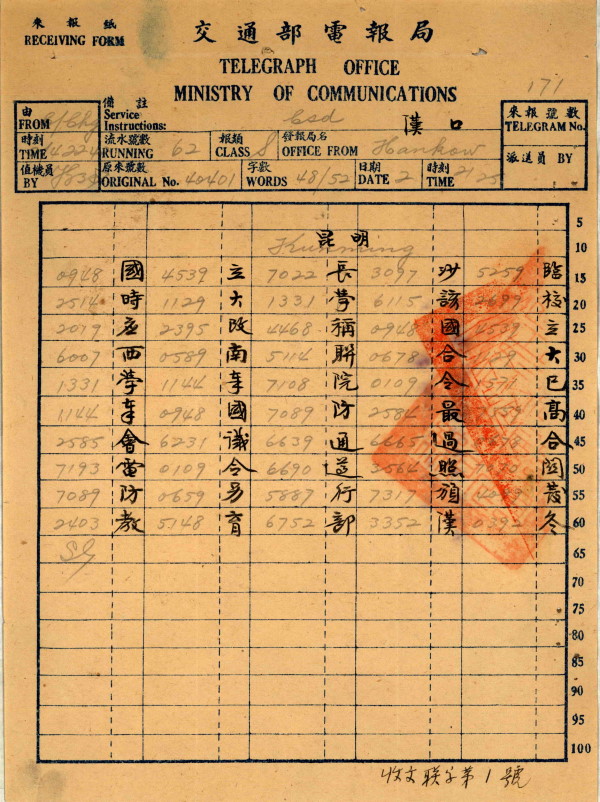 來報紙
RECEIVING FORM
交通部電報局
TELEGRAPH OFFICE
MINISTRY OF COMMUNICATIONS
171
由 FROM
備註 Service Instructions: Csd
漢口
來報號數 TELEGRAM No.
時刻 TIME
流水號數 RUNNING 62
報類 CLASS S
發報局名 OFFICE FROM Hankow
派送員 BY
值機員 BY
原來號數 ORIGINAL No. 40401
字數 WORDS 48/52
日期 DATE 2
時刻 TIME 21 25
5
昆明
10
Kunming
0948 國 4539 立 7022 長 3097 沙 5259 臨
15
2514 時 1129 大 1331 學 6115 該 2699 校
20
2019 应 2395 改 4468 稱 0948 國 4539 立
25
6007 西 0589 南 5114 聯 0678 合 大
30
1331 學 1144 奉 7108 院 0109 令 已
35
1144 奉 0948 國 7089 防 2584 最 高
40
2585 會 6231 議 6639 通 6665 過 合
45
7193 電 0109 令 6690 遵 3564 照 関
50
7089 防 0659 另 5887 行 7317 頒 發
55
2403 教 5148 育 6752 部 3352 漢 0392 冬
60
65
70
75
80
85
90
95
100
收文联字第1號